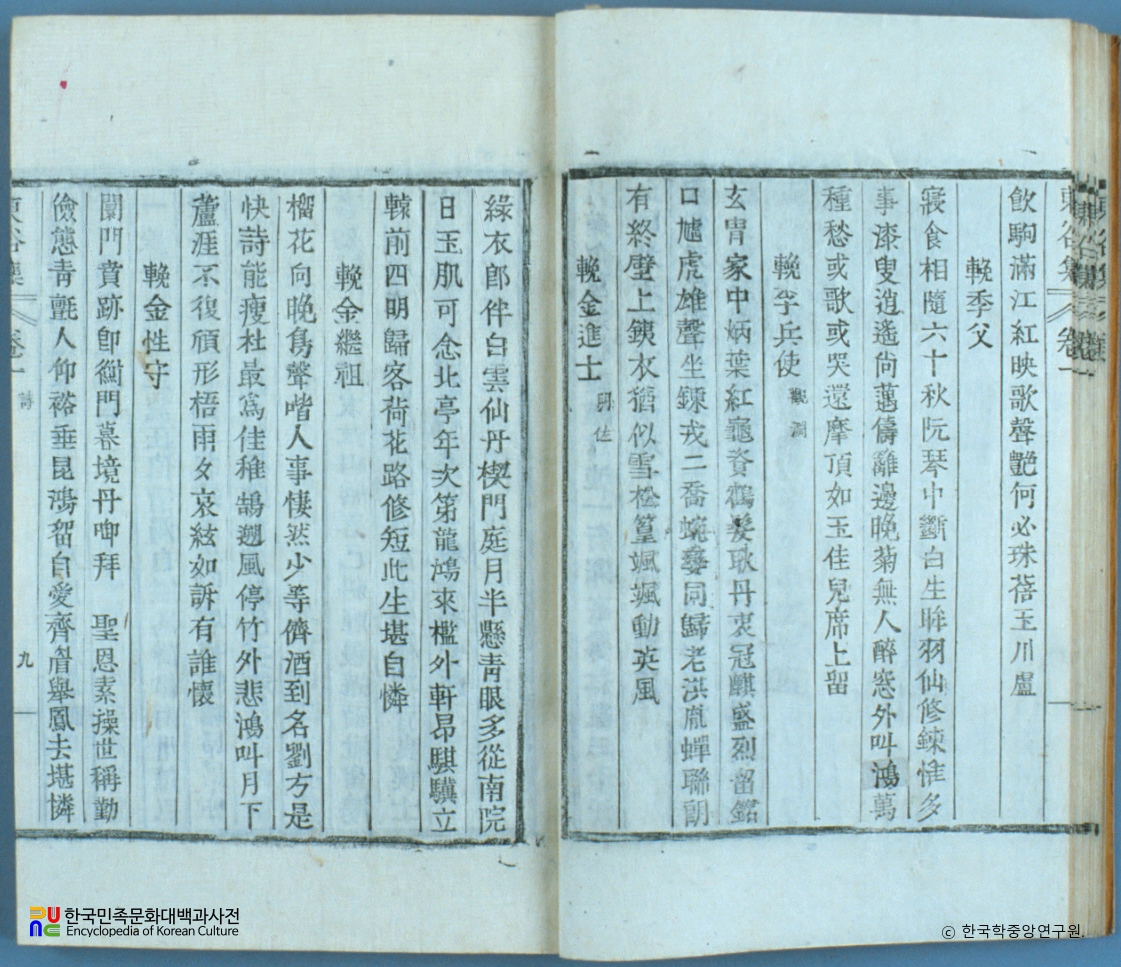 飮駒滿江紅映歌聲艷何必珠蓓玉川盧
輓季父
寢食相隨六十秋阮琴中斷白生眸羽仙修鍊惟多
事漆叟逍遙尙邁儔籬邊晩菊無人醉窓外叫鴻萬
種愁或歌或哭還摩頂如玉佳兒席上留
輓李兵使
玄冑家中炳葉紅龜資鶴髮耿丹衷冠麒盛烈留銘
口墟虎雄聲坐鍊戎二喬婉孌同歸老洪胤蟬聯朗
有終壁上銕衣猶似雪松篁颯颯動英風
輓金進士
綠衣郎伴白雲仙丹楔門庭月半懸靑眼多從南院
日玉肌可念北亭年次第龍鴻來檻外軒昂騏驥立
轅前四明歸客荷花路修短此生堪自憐
輓金繼祖
榴花向晩鳥聲喈人事悽然少等儕酒到名劉方是
快詩能瘦杜最爲佳稚鵠遡風停竹外悲鴻叫月下
蘆涯不復頎形梧雨夕哀絃如訴有誰懷
輓金性守
闤門賁跡卽衡門暮境丹啣拜 聖恩素操世稱勤
儉態靑氈人仰裕垂昆鴻留自愛齊眉擧鳳去堪憐
東谷集 卷一 詩 九
한국민족문화대백과사전
Encyclopedia of Korean Culture
© 한국학중앙연구원